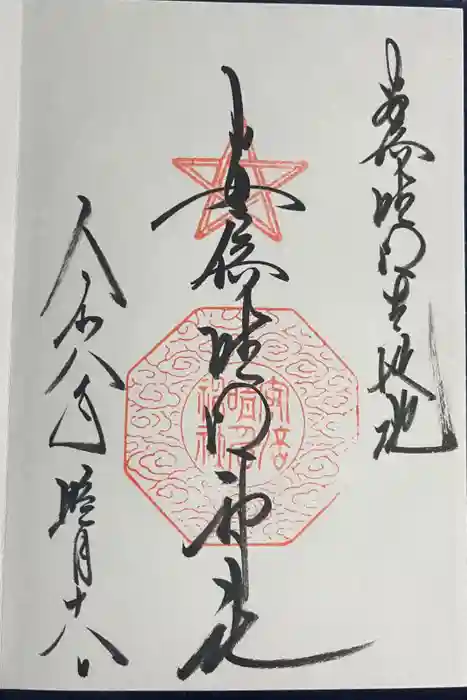 安倍晴明生誕地
安倍晴明神社
令和八年 睦月十八日
安倍
晴明
神社